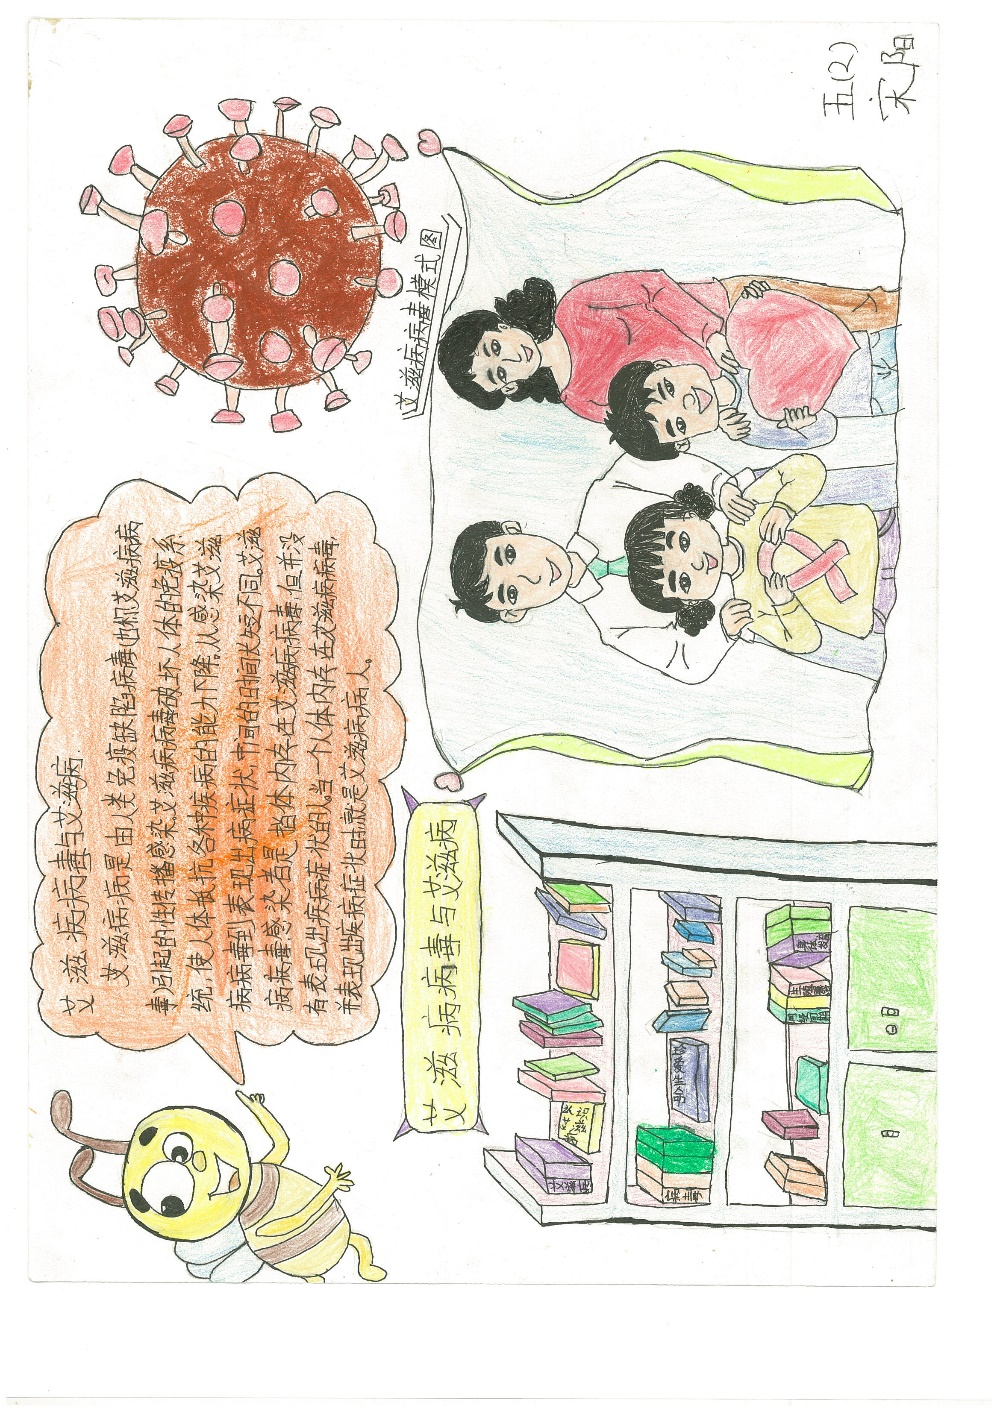 艾滋病病毒与艾滋病
艾滋病病是由人类免疫缺陷病毒(也称艾滋病病
毒)引起的性传播感染.艾滋病病毒破坏人体的免疫系
统,使人体抵抗各种疾病的能力下降。从感染艾滋
病病毒到表现出病症状,中间的时间长短不同。艾滋
病病毒感染者是指体内存在艾滋病病毒,但并没
有表现出疾病症状的人当一个人体内存在艾滋病病毒
并表现出疾病症状时就是艾滋病病人。
艾滋病病毒模式图
五(2)
宋阳
艾滋病病毒与艾滋病
艾滋病
知识
珍爱生命
病毒
身体发育